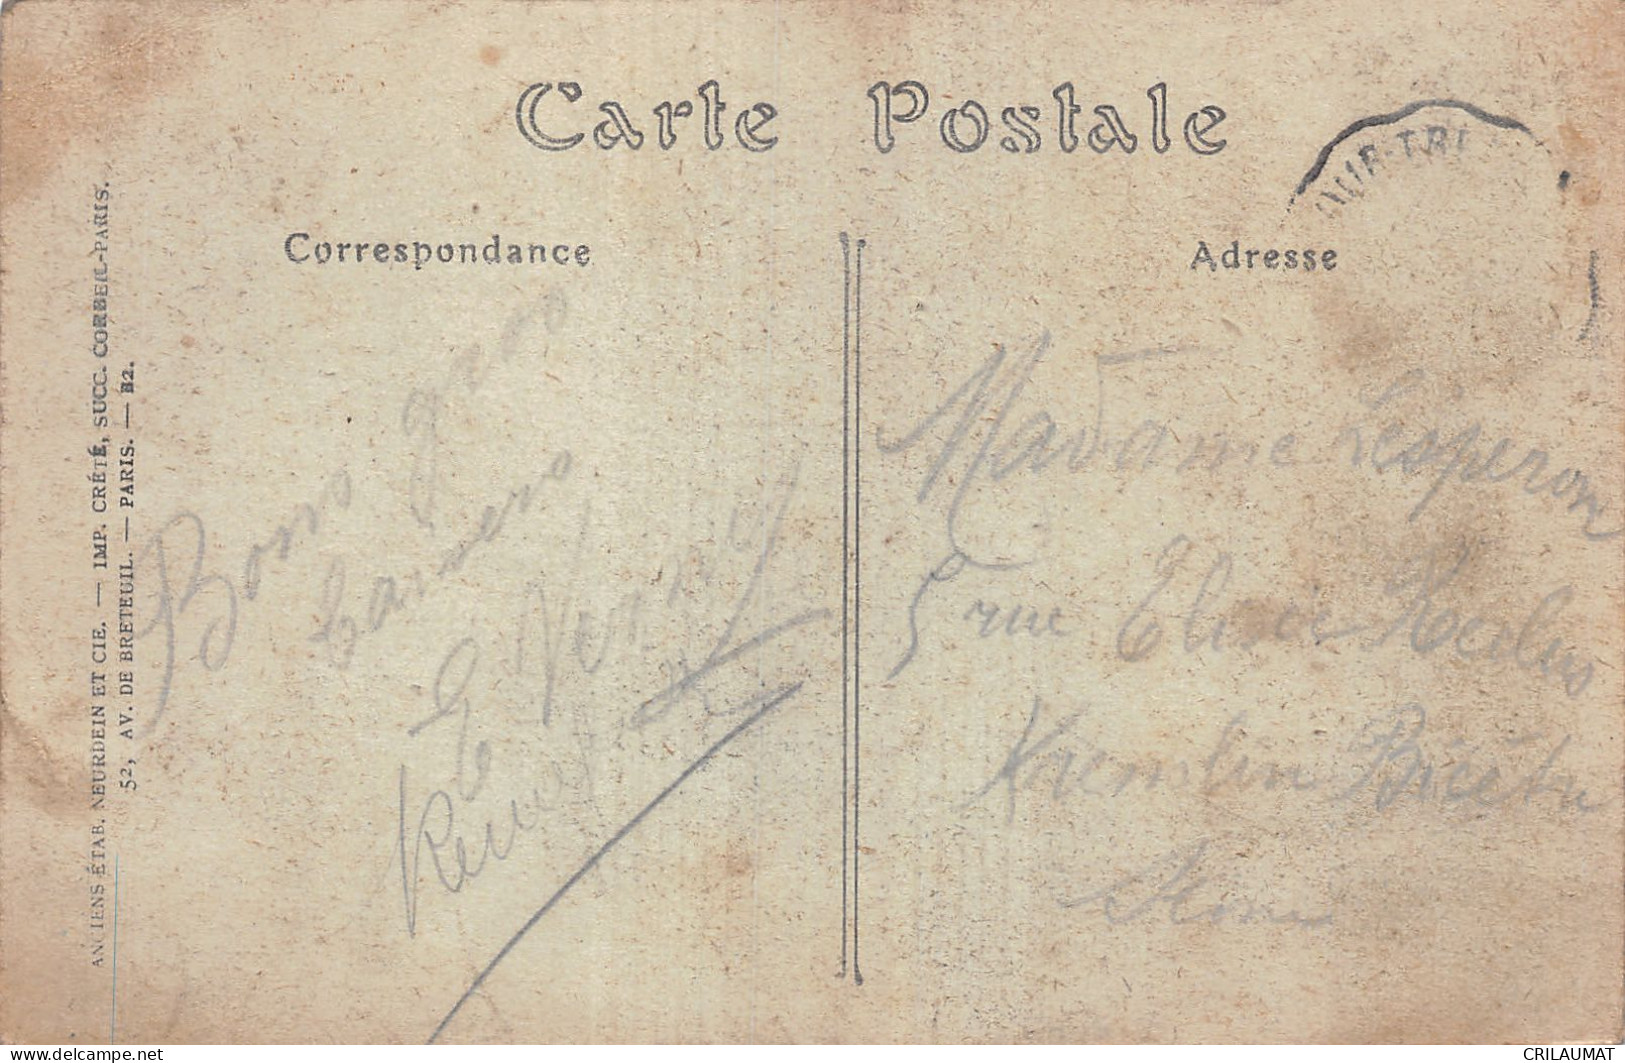 Carte Postale
Correspondance
Adresse
ANCIENS ÉTAB. NEURDEIN ET CIE. — IMP. CRÉTÉ, SUCC. CORBEIL-PARIS.
52, AV. DE BRETEUIL. — PARIS. — B2.
Bons gros
E
René
Madame Lesperon
5 rue
Kremlin Bicêtre
Seine
www.delcampe.net
CRILAUMAT